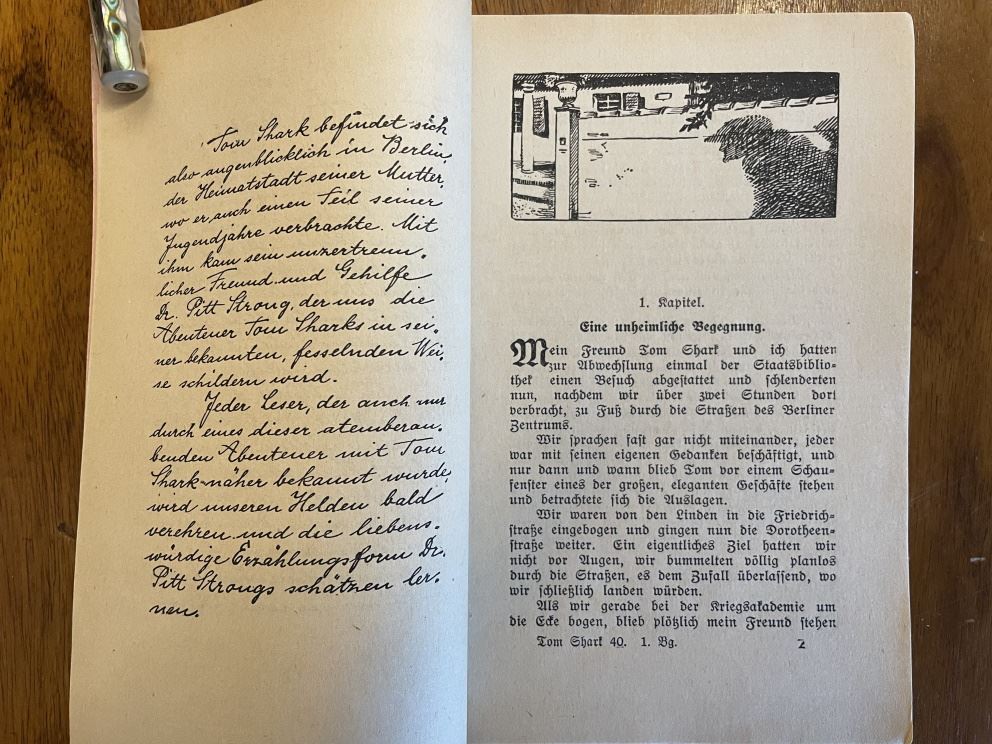 Tom Shark befindet sich
also augenblicklich in Berlin,
der Heimatstadt seiner Mutter,
wo er auch einen Teil seiner
Jugendjahre verbrachte. Mit
ihm kam sein unzertrenn-
licher Freund und Gehilfe
Dr. Pitt Strong, der uns die
Abenteuer Tom Sharks in sei-
ner bekannten, fesselnden Wei-
se schildern wird.
Jeder Leser, der auch nur
durch eines dieser atemberau-
benden Abenteuer mit Tom
Shark näher bekannt wurde,
wird unseren Helden bald
verehren und die liebens-
würdige Erzählungsform Dr.
Pitt Strongs schätzen ler-
nen.
1. Kapitel.
Eine unheimliche Begegnung.
Mein Freund Tom Shark und ich hatten
zur Abwechslung einmal der Staatsbiblio-
thek einen Besuch abgestattet und schlenderten
nun, nachdem wir über zwei Stunden dort
verbracht, zu Fuß durch die Straßen des Berliner
Zentrums.
Wir sprachen fast gar nicht miteinander, jeder
war mit seinen eigenen Gedanken beschäftigt, und
nur dann und wann blieb Tom vor einem Schau-
fenster eines der großen, eleganten Geschäfte stehen
und betrachtete sich die Auslagen.
Wir waren von den Linden in die Friedrich-
straße eingebogen und gingen nun die Dorotheen-
straße weiter. Ein eigentliches Ziel hatten wir
nicht vor Augen, wir bummelten völlig planlos
durch die Straßen, es dem Zufall überlassend, wo
wir schließlich landen würden.
Als wir gerade bei der Kriegsakademie um
die Ecke bogen, blieb plötzlich mein Freund stehen
Tom Shark 40. 1. Bg. 2